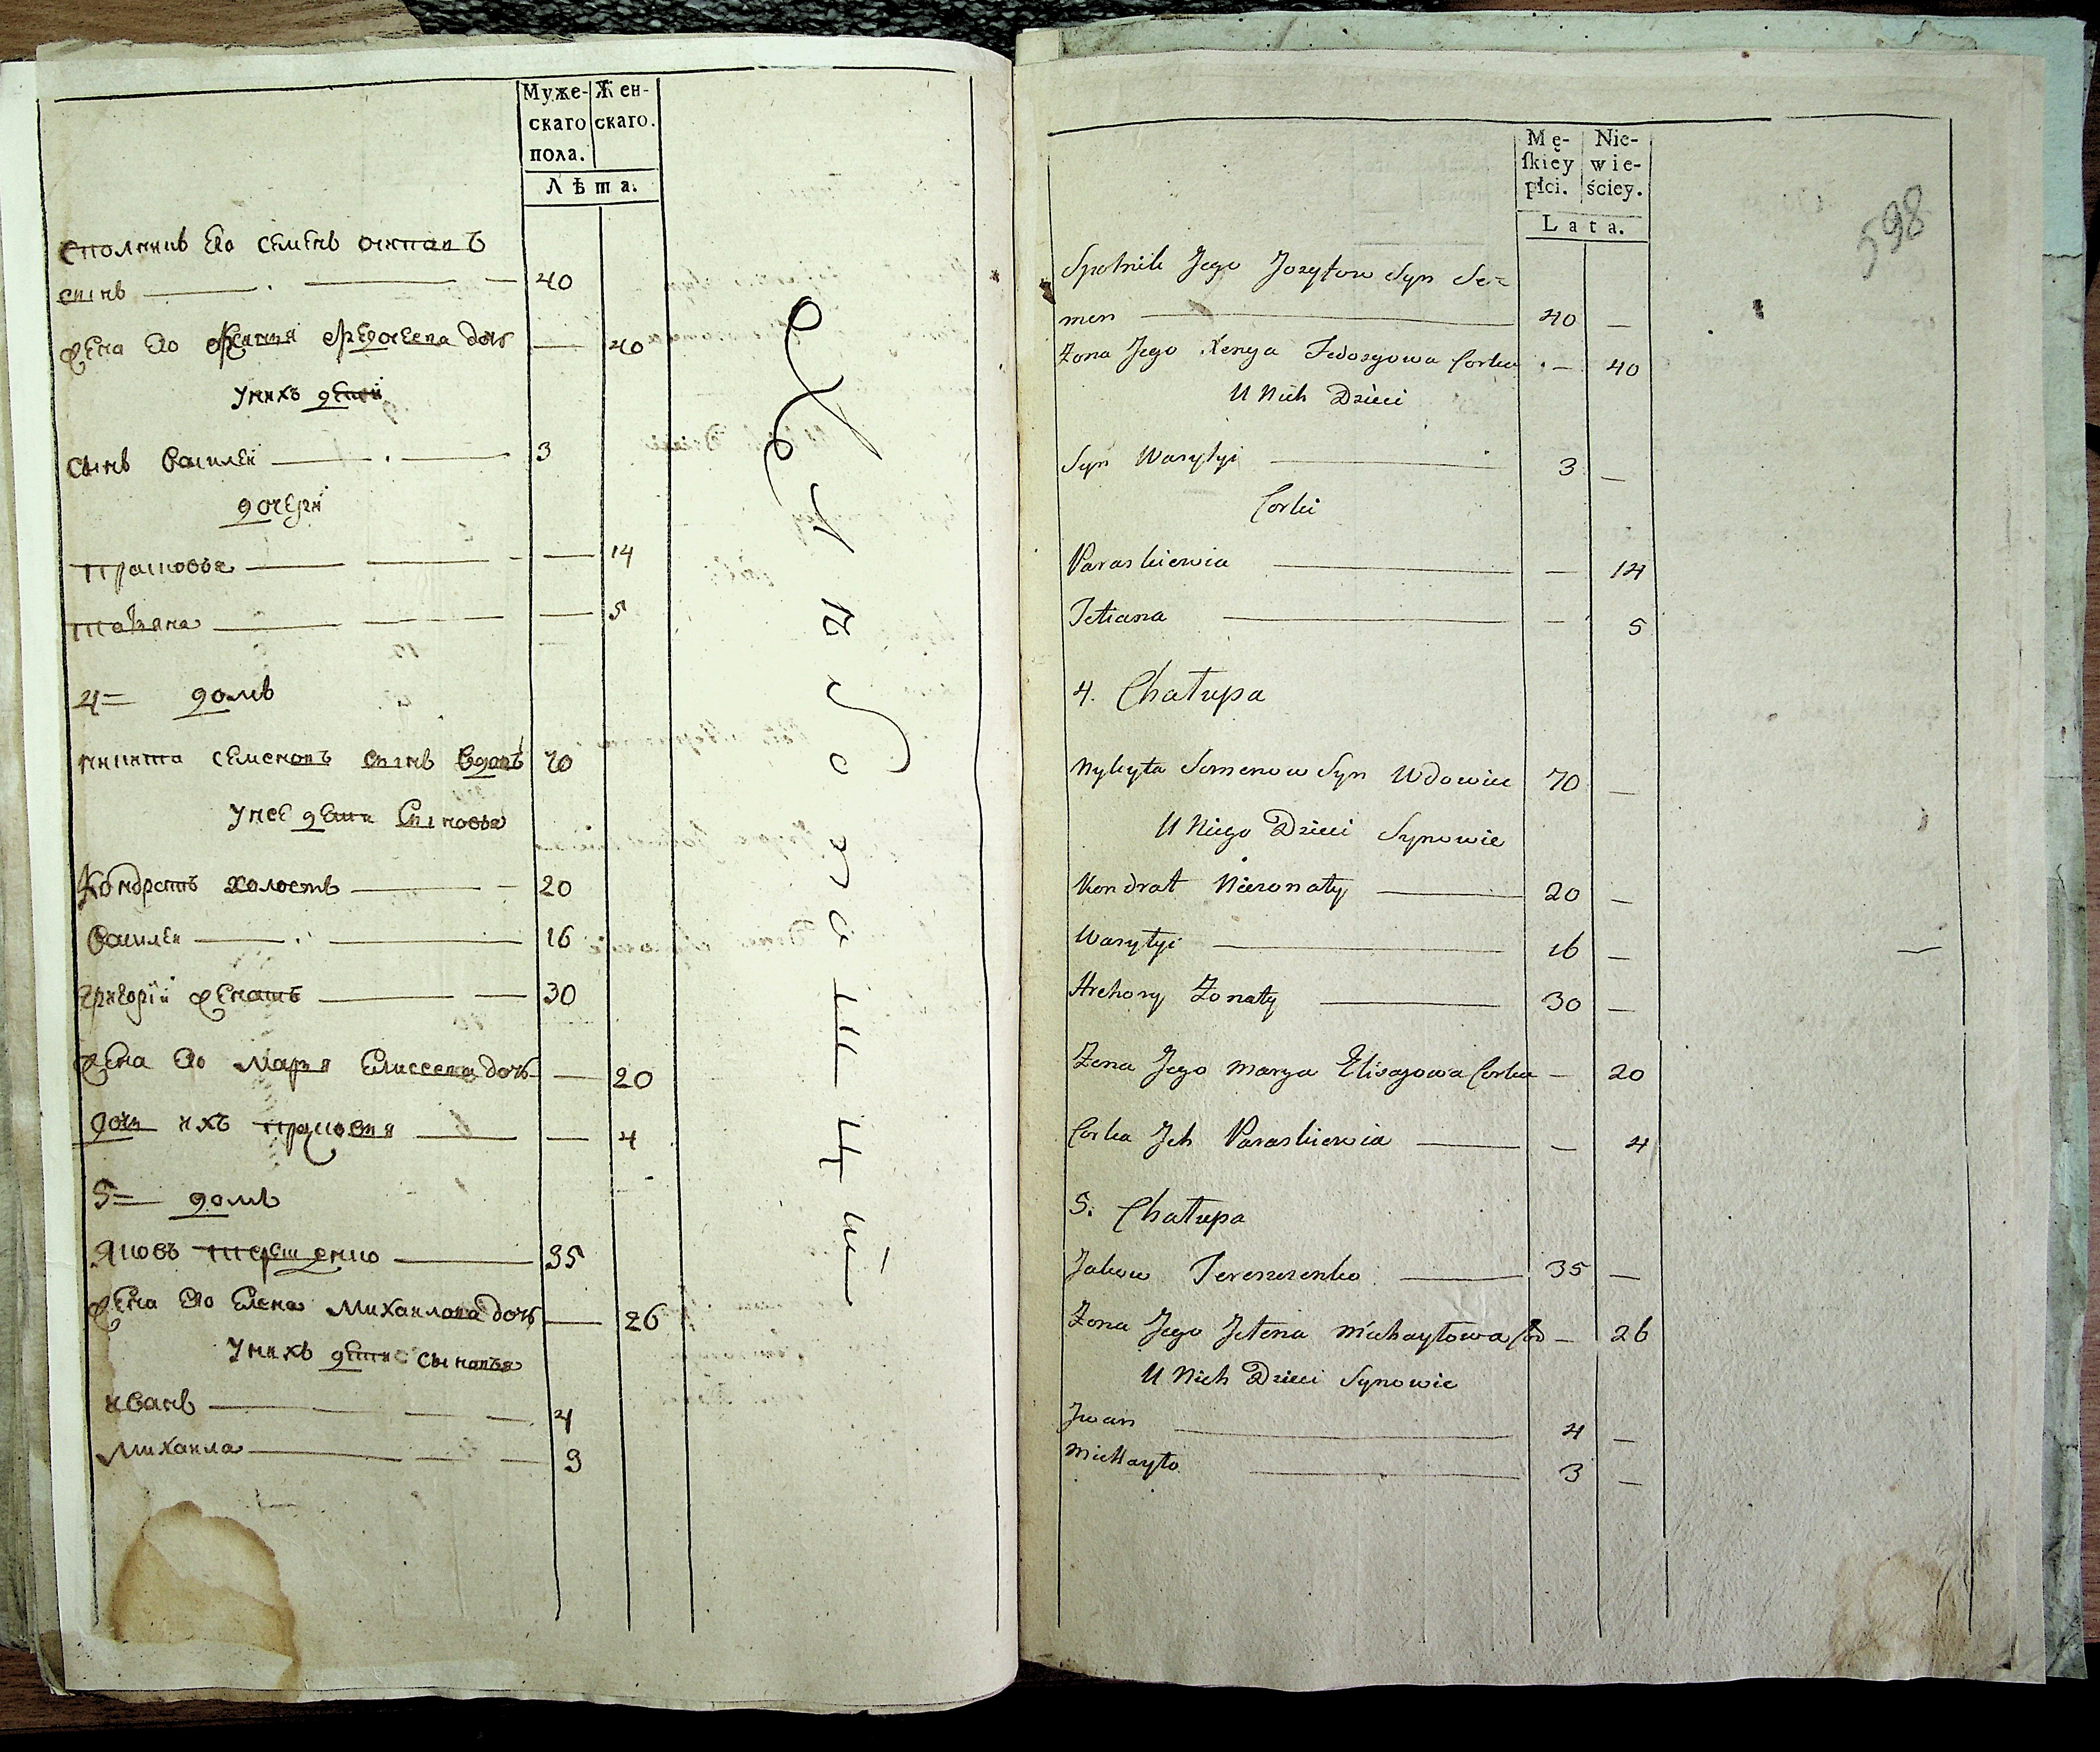 Муже- Жен-
скаго скаго.
пола.
Лѣта.
Спольникъ Его Семенъ
сынъ 40
Жена Его Ксения Федосеева дочъ — 40
У нихъ дети
Сынъ Василеи 3
дочери
Прасковья — 14
Татяна — 5
4 = домъ
Никита Семеновъ Сынъ Вдовъ 70
У нее дети Сыновья
Кондратъ холостъ 20
Василеи 16
Григорїй женатъ 30
Жена Его Марья Елисеева дочъ — 20
дочь ихъ Прасковия — 4
5 = домъ
Яковъ Терещенко 35
Жена Его Елена Михаилова дочъ — 26
У нихъ дети сыновья
Иванъ 4
Михаила 3
Mę- Nie-
skiey wie-
płci. ściey.
Lata.
598
Spolnik Jego Jozyfow Syn Se=
men 40 —
Zona Jego Xenya Fedosyowa Corka — 40
U Nich Dzieci
Syn Wasylyi 3 —
Corki
Paraskiewia — 14
Tetiana — 5
4. Chałupa
Nykyta Semenow Syn Wdowiec 70 —
U Niego Dzieci Synowie
Kondrat Niezonaty 20 —
Wasylyi 16 —
Hrehory Zonaty 30 —
Zona Jego Marya Elisayowa Corka — 20
Corka Jch Paraskiewia — 4
5. Chałupa
Jakow Tereszczenko 35 —
Zona Jego Jełena Michayłowa Cor — 26
U Nich Dzieci Synowie
Jwan 4 —
Michayło 3 —